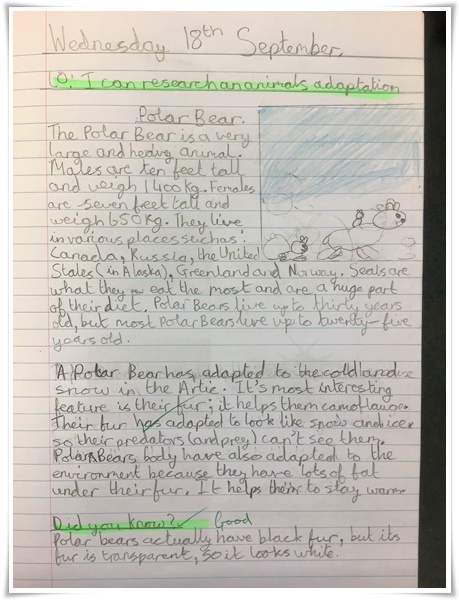 Wednesday 18th September.
O: I can research an animals adaptation
Polar Bear.
The Polar Bear is a very
large and heavy animal.
Males are ten feet tall
and weigh 1400kg. Females
are seven feet tall and
weigh 650kg. They live
in various places such as:
Canada, Russia, the United
States (in Alaska), Greenland and Norway. Seals are
what they eat the most and are a huge part
of their diet. Polar Bears live up to thirty years
old, but most Polar Bears live up to twenty-five
years old.
A Polar Bear has adapted to the cold land
snow in the Artic. It's most interesting
feature is their fur; it helps them camoflauge.
Their fur has adapted to look like snow and ice
so their predators (and prey) can't see them.
Polar Bears body have also adapted to the
environment because they have lots of fat
under their fur. It helps them to stay warm
Did you know? Good
Polar bears actually have black fur, but its
fur is transparent, so it looks white.